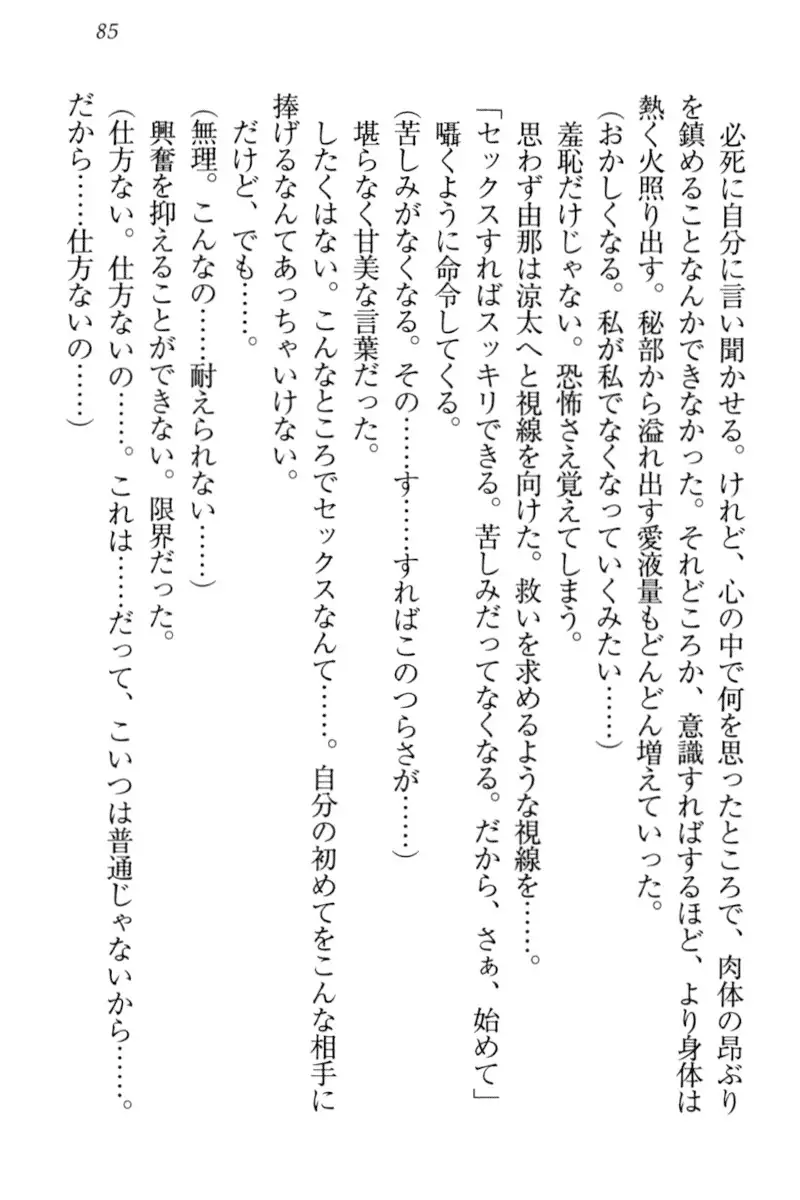 85
必死に自分に言い聞かせる。けれど、心の中で何を思ったところで、肉体の昂ぶり
を鎮めることなんかできなかった。それどころか、意識すればするほど、より身体は
熱く火照り出す。秘部から溢れ出す愛液量もどんどん増えていった。
(おかしくなる。私が私でなくなっていくみたい……)
羞恥だけじゃない。恐怖さえ覚えてしまう。
思わず由那は涼太へと視線を向けた。救いを求めるような視線を……。
「セックスすればスッキリできる。苦しみだってなくなる。だから、さぁ、始めて」
囁くように命令してくる。
(苦しみがなくなる。その……す……すればこのつらさが……)
堪らなく甘美な言葉だった。
したくはない。こんなところでセックスなんて……。自分の初めてをこんな相手に
捧げるなんてあっちゃいけない。
だけど、でも……。
(無理。こんなの……耐えられない……)
興奮を抑えることができない。限界だった。
(仕方ない。仕方ないの……。これは……だって、こいつは普通じゃないから……。
だから……仕方ないの……)